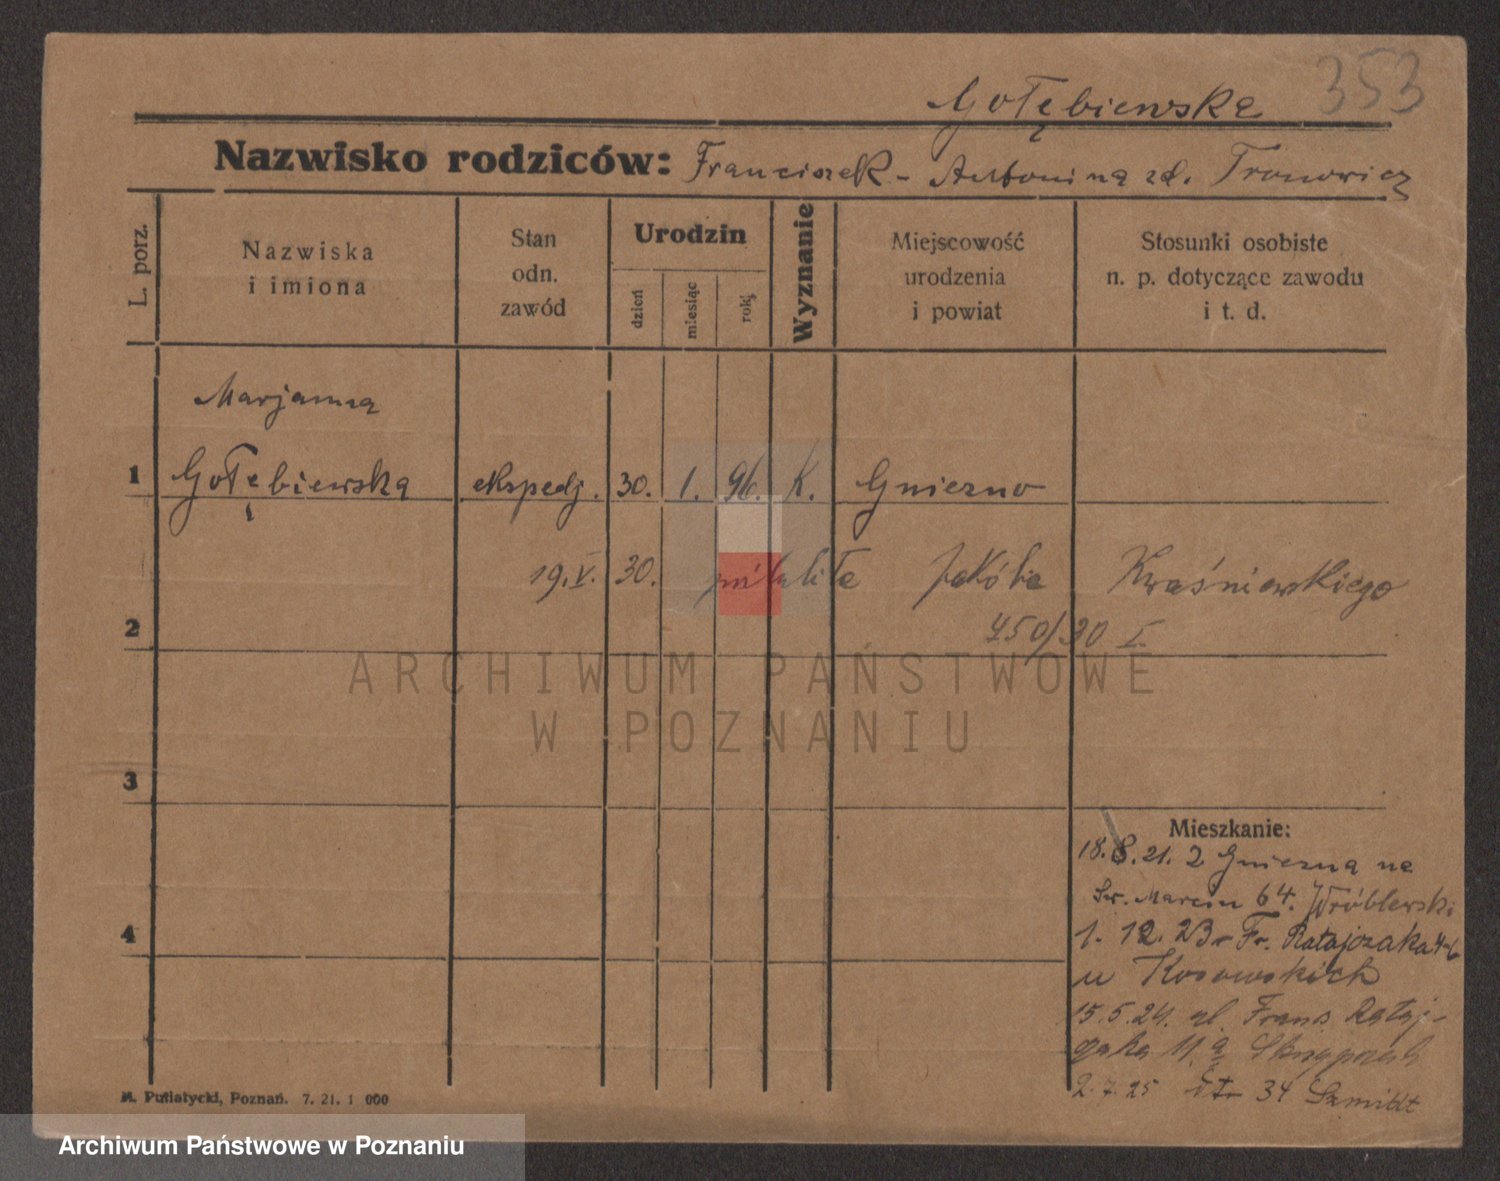 353
Gołębiewska
Nazwisko rodziców: Franciszek - Antonina zd. Tronowicz
L. porz.
Nazwiska
i imiona
Stan
odn.
zawód
Urodzin
dzień
miesiąc
rok
Wyznanie
Miejscowość
urodzenia
i powiat
Stosunki osobiste
n. p. dotyczące zawodu
i t. d.
Marjanna
1 Gołębiewska ekspedj. 30. 1. 96. K. Gniezno
19. V. 30. poślubiła Jakóba Kwaśniewskiego
450/30 I.
2
3
4
Mieszkanie:
18. 8. 21. z Gniezna na
Św. Marcin 64. Wróblewski
1. 12. 23 Fr. Ratajczaka
u Kosowskich
15. 5. 24. ul. Franc. Rataj-
czaka 11a
2. 7. 25 34 Szmidt
M. Putiatycki, Poznań. 7. 21. 1 000
ARCHIWUM PAŃSTWOWE
W POZNANIU
Archiwum Państwowe w Poznaniu